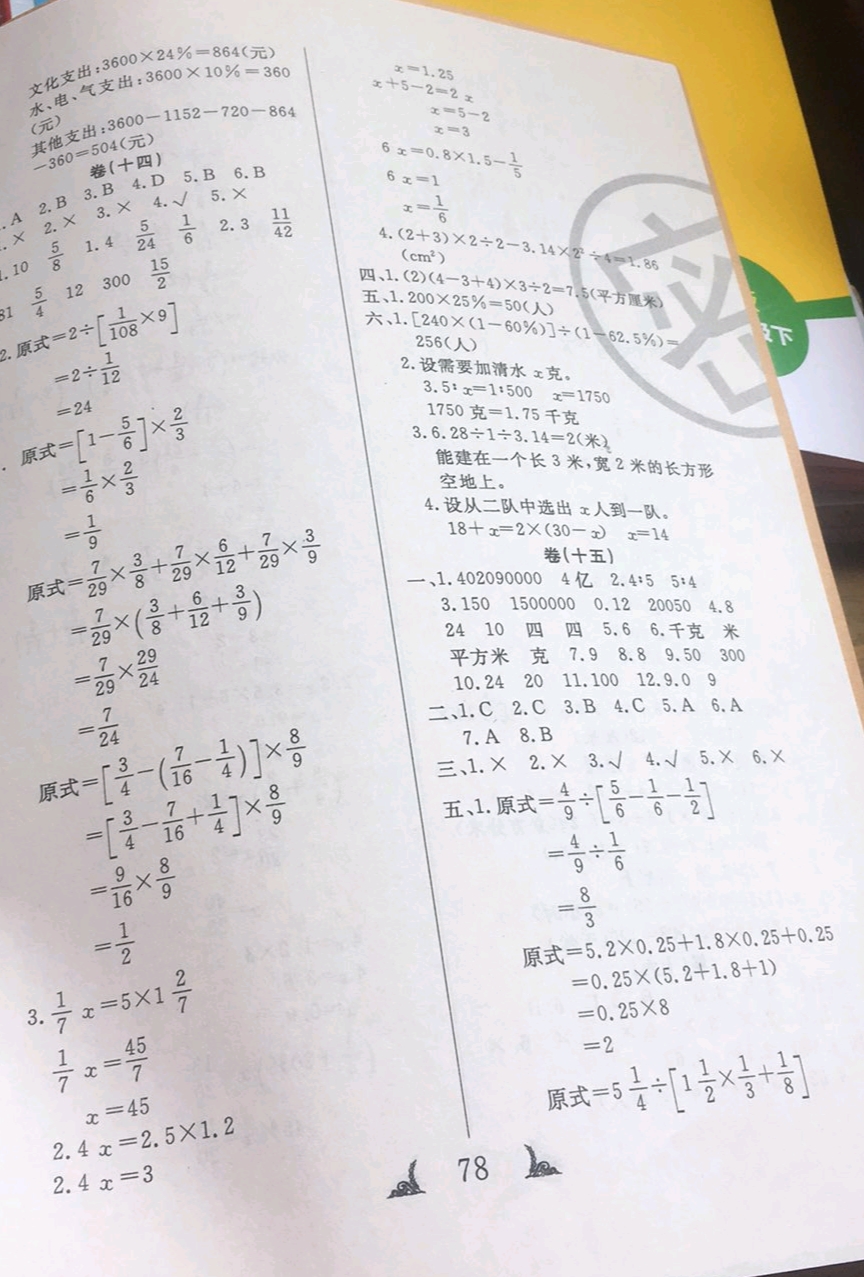 文化支出:3600×24%=864(元)
水、电、气支出:3600×10%=360
(元)
其他支出:3600-1152-720-864
-360=504(元)
卷(十四)
.A 2.B 3.B 4.D 5.B 6.B
.× 2.× 3.× 4.√ 5.×
.10 5/8 1.4 5/24 1/6 2.3 11/42
81 5/4 12 300 15/2
2.原式=2÷[1/108×9]
=2÷1/12
=24
.原式=[1-5/6]×2/3
=1/6×2/3
=1/9
原式=7/29×3/8+7/29×6/12+7/29×3/9
=7/29×(3/8+6/12+3/9)
=7/29×29/24
=7/24
原式=[3/4-(7/16-1/4)]×8/9
=[3/4-7/16+1/4]×8/9
=9/16×8/9
=1/2
3.1/7 x=5×1 2/7
1/7 x=45/7
x=45
2.4 x=2.5×1.2
2.4 x=3
x=1.25
x+5-2=2 x
x=5-2
x=3
6 x=0.8×1.5-1/5
6 x=1
x=1/6
4.(2+3)×2÷2-3.14×2²÷4=1.86
(cm²)
四、1.(2)(4-3+4)×3÷2=7.5(平方厘米)
五、1.200×25%=50(人)
六、1.[240×(1-60%)]÷(1-62.5%)=
256(人)
2.设需要加清水 x 克。
3.5:x=1:500 x=1750
1750 克=1.75 千克
3.6.28÷1÷3.14=2(米)
能建在一个长 3 米,宽 2 米的长方形
空地上。
4.设从二队中选出 x 人到一队。
18+x=2×(30-x) x=14
卷(十五)
一、1.402090000 4 亿 2.4:5 5:4
3.150 1500000 0.12 20050 4.8
24 10 四 四 5.6 6.千克 米
平方米 克 7.9 8.8 9.50 300
10.24 20 11.100 12.9.0 9
二、1.C 2.C 3.B 4.C 5.A 6.A
7.A 8.B
三、1.× 2.× 3.√ 4.√ 5.× 6.×
五、1.原式=4/9÷[5/6-1/6-1/2]
=4/9÷1/6
=8/3
原式=5.2×0.25+1.8×0.25+0.25
=0.25×(5.2+1.8+1)
=0.25×8
=2
原式=5 1/4÷[1 1/2×1/3+1/8]
78
密
下